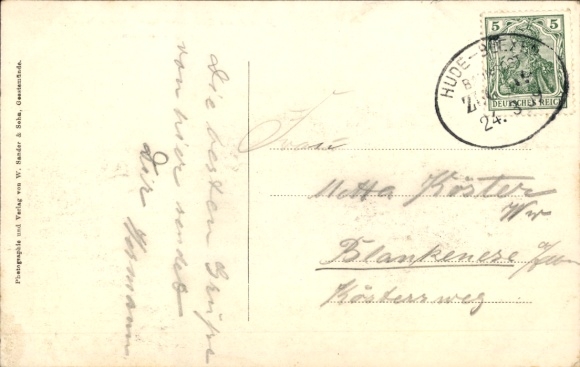 Photographie und Verlag von W. Sander & Sohn, Geestemünde.
Die besten Grüße
von hier sendet
Dir Hermann
5 5
DEUTSCHES REICH
HUDE-
24. 3 9
Frau
Metta Köster
Ww
Blankenese
Köstersweg